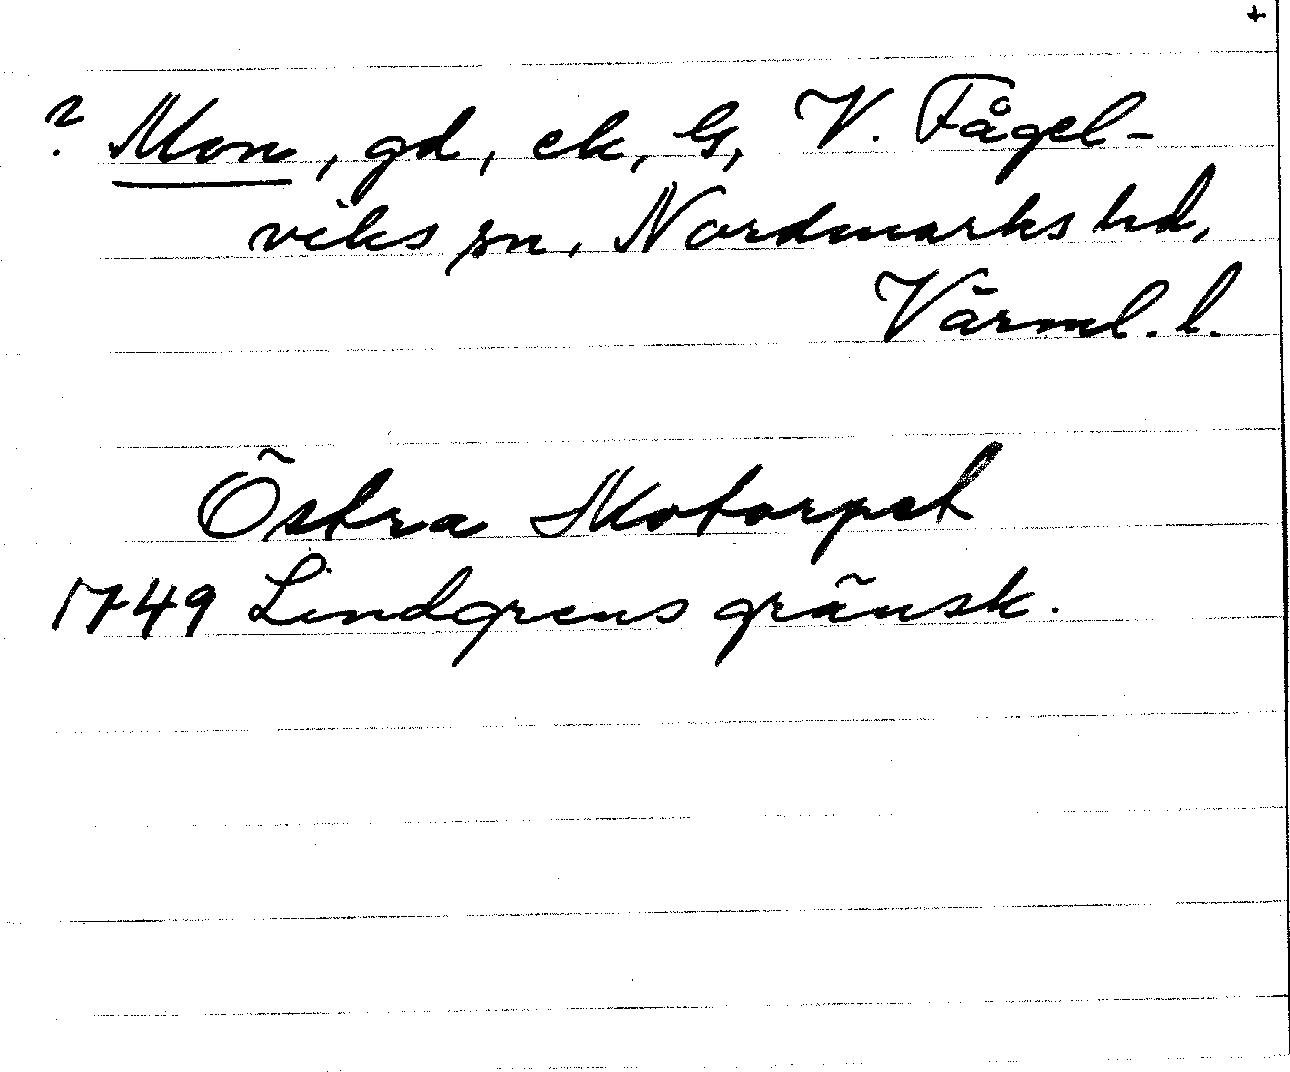 +
? Mon, gd, ek, G, V. Fågel-
viks sn, Nordmarks hd,
Värml. l.
Östra Motorpet
1749 Lindgrens gränsk.